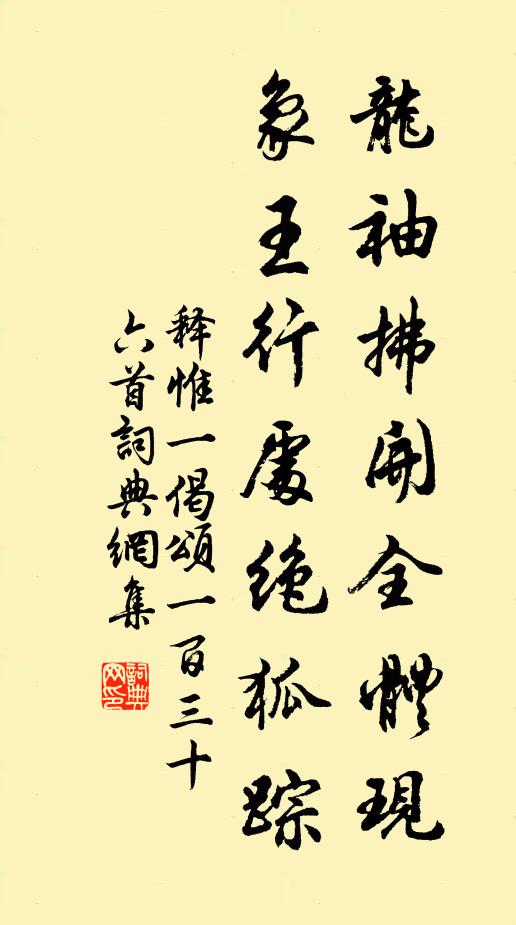 龍袖拂開全體現
象王行處絶狐踪
释惟一偈頌一百三十
六首詞典網集
詞典网印